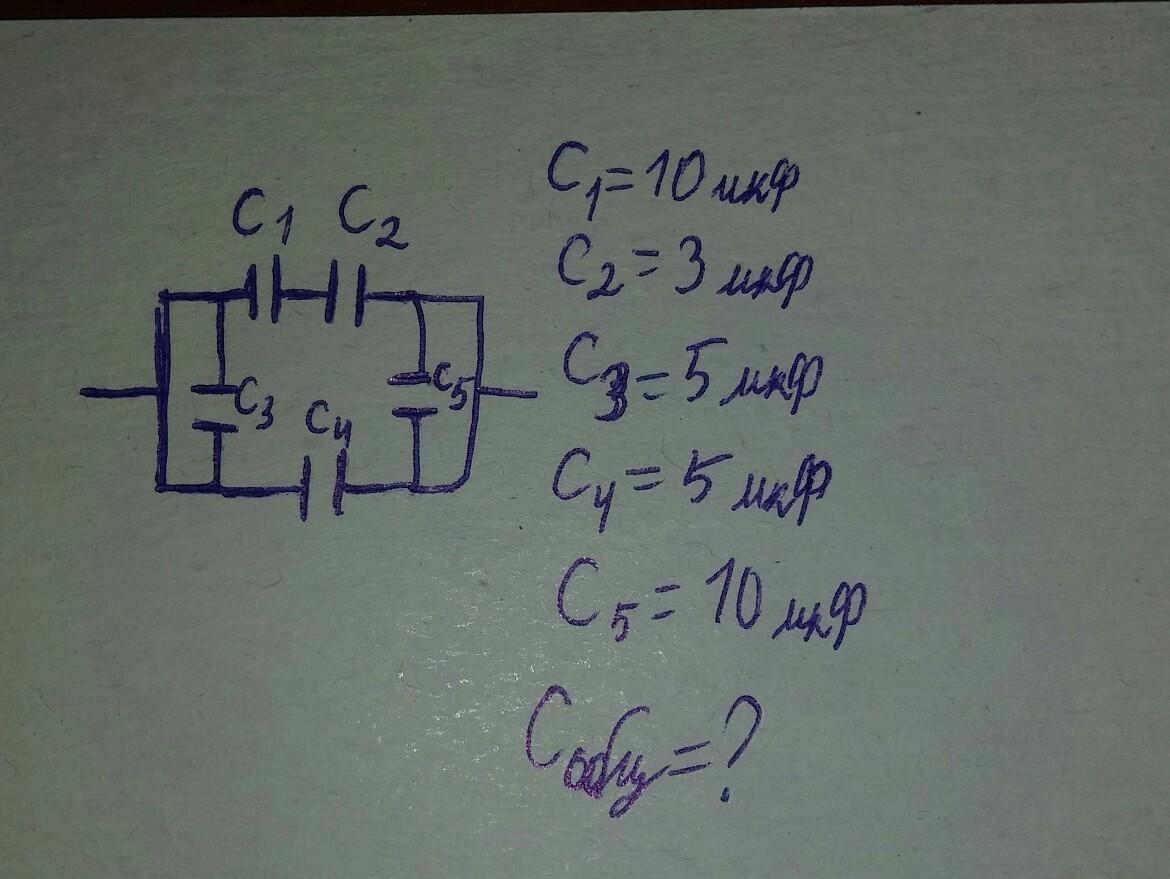 C1 C2
C3
C4
C5
C1=10 мкф
C2=3 мкф
C3=5 мкф
C4=5 мкф
C5=10 мкф
Cобщ=?